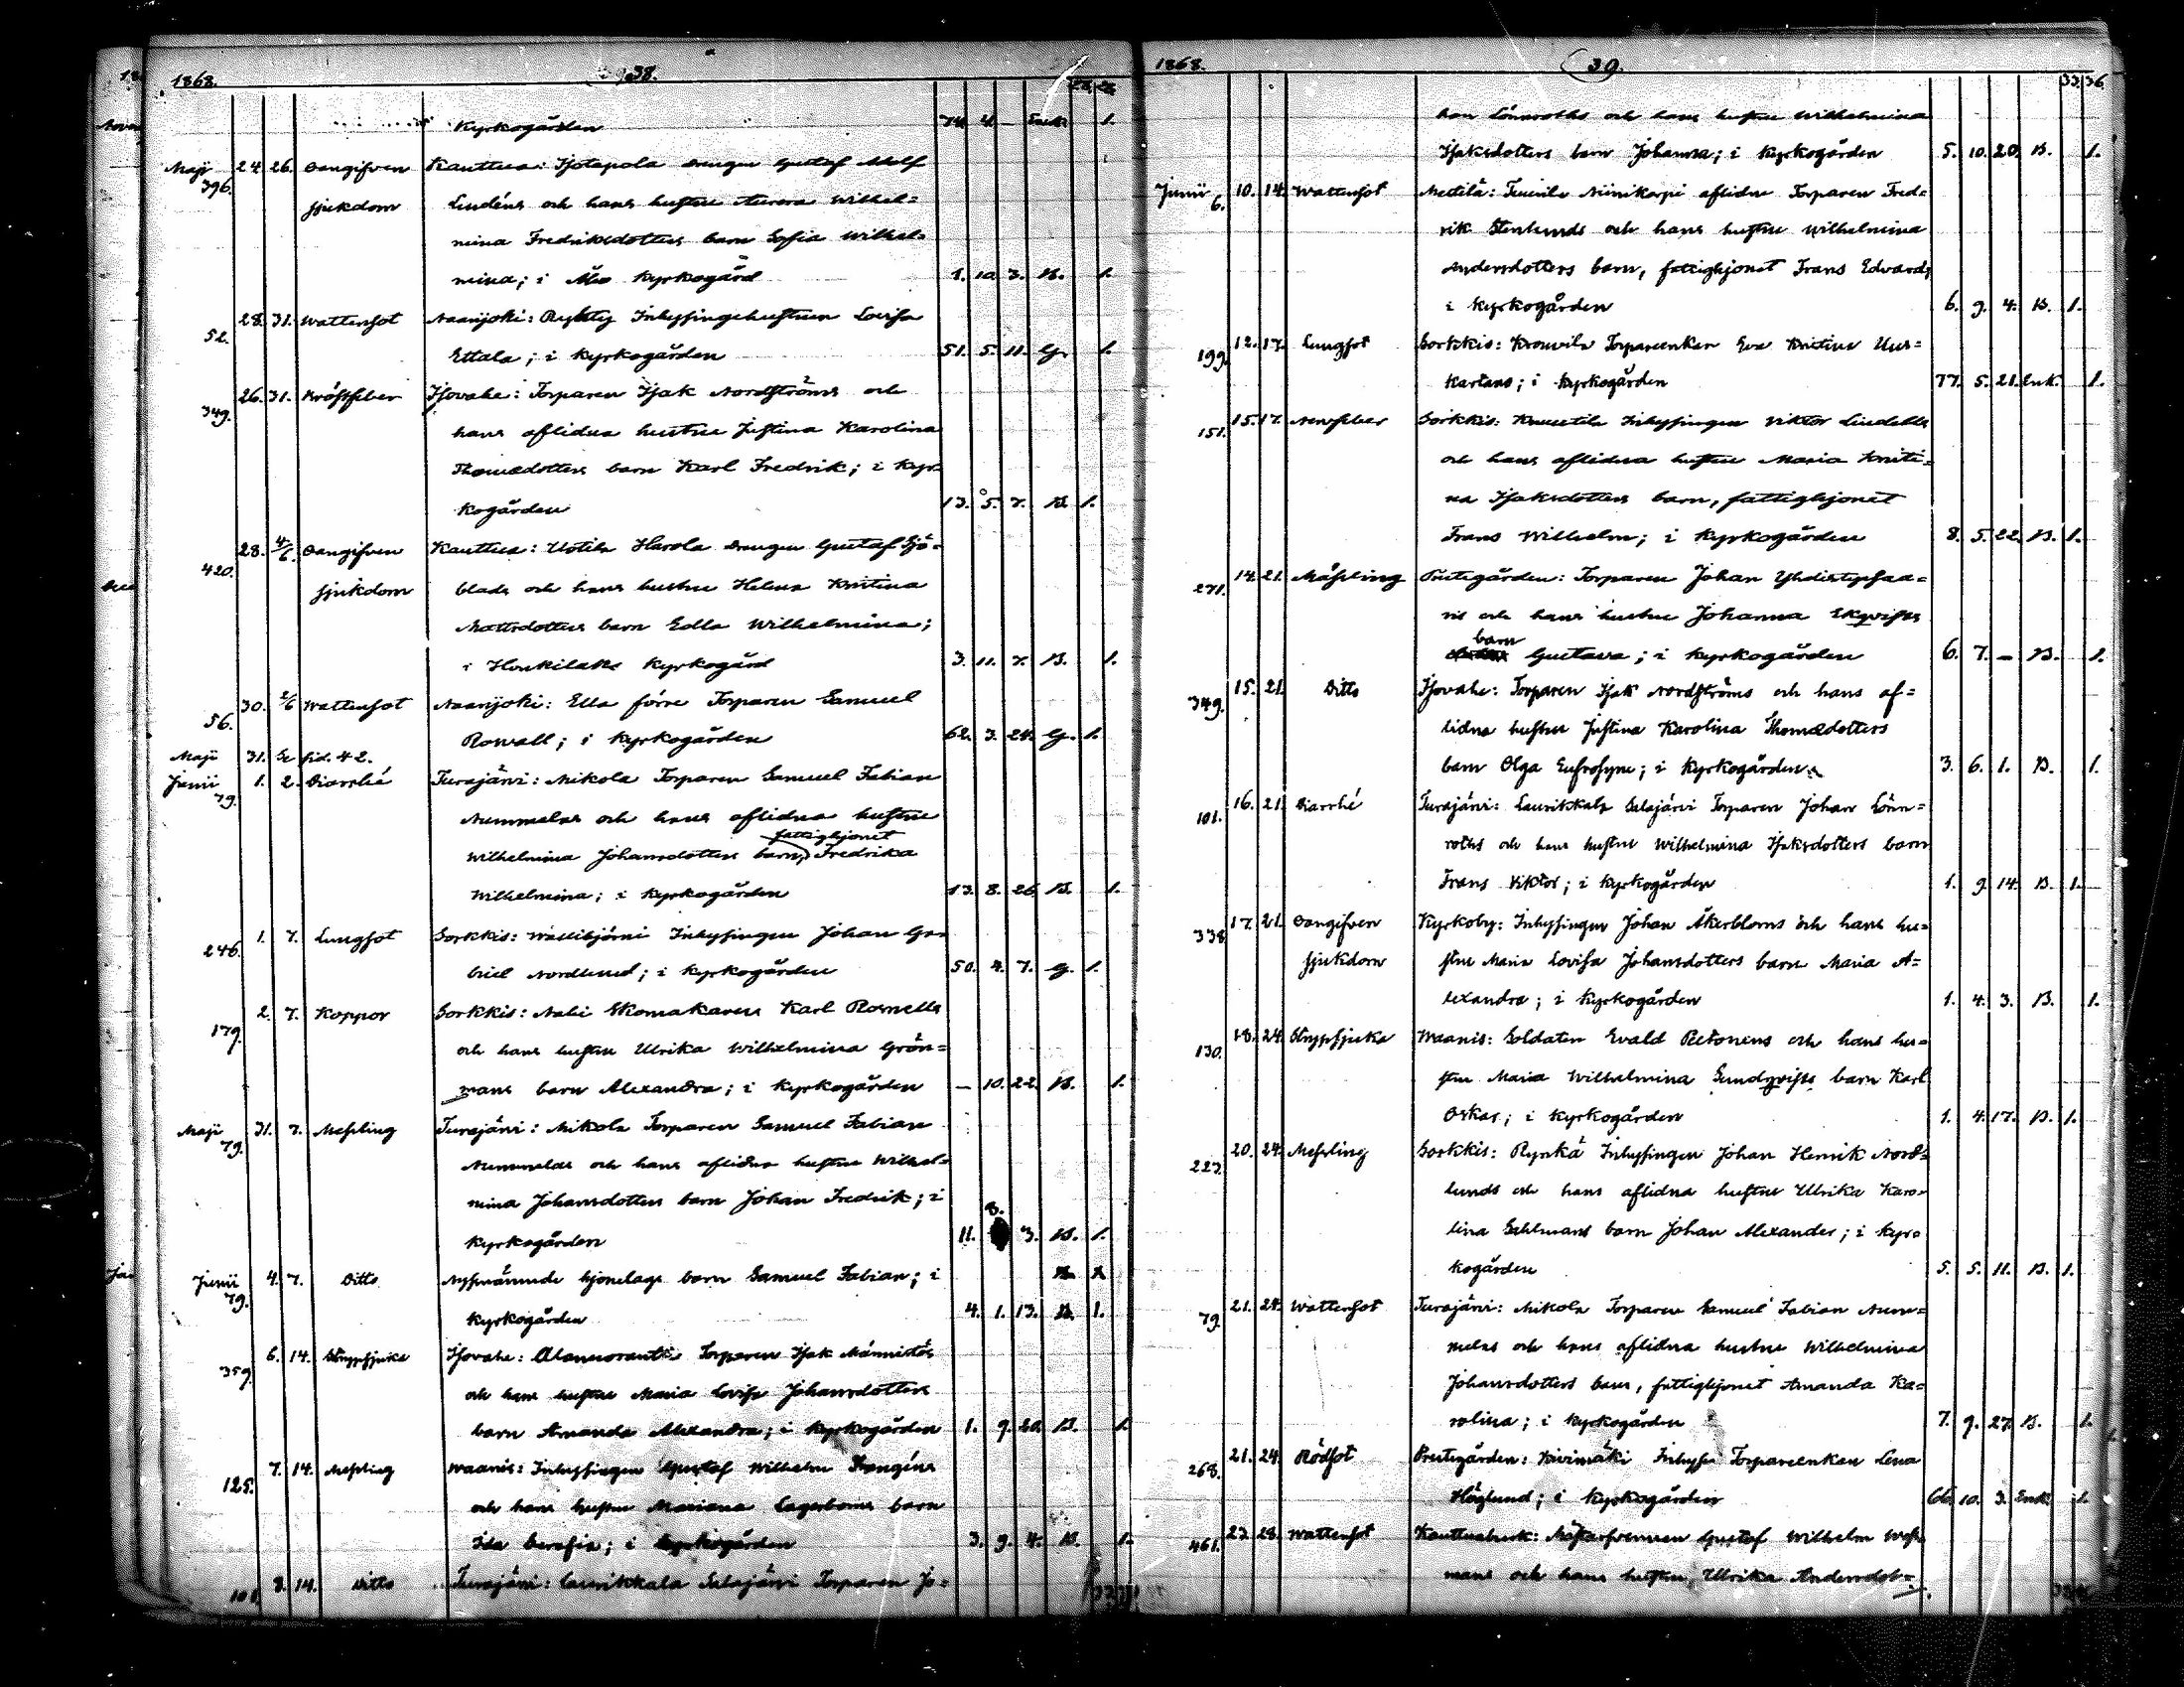 1868. 38.
Kyrkogården 74. 4. — Enk. 1.
Maji 24. 26. Oangifven Kauttua: Isotapola Drengen Gustaf Adolf
396. sjukdom Lindéns och hans hustru Aurora Wilhel=
mina Fredriksdotters barn Sofia Wilhel=
mina; i Åbo Kyrkogård 1. 10. 3. B. 1.
28. 31. Wattensot Naarijoki: Inhysingehustrun Lovisa
52. Ettala; i Kyrkogården 51. 5. 11. G. 1.
26. 31. Bröstfeber Isovahe: Torparen Isak Nordströms och
349. hans aflidna hustru Justina Karolina
Thomædotters barn Karl Fredrik; i Kyr=
kogården 13. 5. 7. B. 1.
28. 4/6 Oangifven Kauttua: Uotila Harola Drengen Gustaf Sjö=
420. sjukdom blads och hans hustru Helena Kristina
Mattsdotters barn Edla Wilhelmina;
i Honkilaks Kyrkogård 3. 11. 7. B. 1.
30. 2/6 Wattensot Naarijoki: Ella förre Torparen Samuel
56. Rosvall; i Kyrkogården 62. 3. 24. G. 1.
Maji 31. Se sid. 42.
Junii 1. 2. Diarrhé Turajärvi: Mikola Torparen Samuel Fabian
79. Nummelas och hans aflidna hustru
fattighjonet
Wilhelmina Johansdotters barn, Fredrika
Wilhelmina; i Kyrkogården 13. 8. 26. B. 1.
1. 7. Lungsot Sorkkis: Inhysingen Johan Ga=
246. briel Nordlund; i Kyrkogården 50. 4. 7. G. 1.
2. 7. Koppor Sorkkis: Nali Skomakaren Karl Rosnells
179. och hans hustru Ulrika Wilhelmina Grön=
mans barn Alexandra; i Kyrkogården — 10. 22. B. 1.
Maji 31. 7. Messling Turajärvi: Mikola Torparen Samuel Fabian
79. Nummelas och hans aflidna hustru Wilhel=
mina Johansdotters barn Johan Fredrik; i
Kyrkogården 11. 8. 3. B. 1.
Junii 4. 7. Ditto Nyssnämnde hjonelags barn Samuel Fabian; i
79. Kyrkogården 4. 1. 13. B. 1.
6. 14. Strypsjuka Isovahe: Torparen Isak Männistös
359. och hans hustru Maria Lovisa Johansdotters
barn Amanda Alexandra; i Kyrkogården 1. 9. 20. B. 1.
7. 14. Messling Waanis: Inhysingen Gustaf Wilhelm
125. och hans hustru Mariana Lagerboms barn
Ida Serafia; i Kyrkogården 3. 9. 4. B. 1.
8. 14. Ditto Turajärvi: Laurikkala Salajärvi Torparen Jo=
101.
1868. 39. 33. 36.
han Lönnroths och hans hustru Wilhelmina
Isaksdotters barn Johanna; i Kyrkogården 5. 10. 20. B. 1.
Junii 10. 14. Wattensot Mestilä: Niinikarpi aflidne Torparen Fred=
6. rik Stenlunds och hans hustru Wilhelmina
Andersdotters barn, fattighjonet Frans Edvard;
i Kyrkogården 6. 9. 4. B. 1.
12. 17. Lungsot Sorkkis: Krouvila Torpareenkan Eva Kristina Uus=
199. Kartano; i Kyrkogården 77. 5. 21. Enk. 1.
15. 17. Nervfeber Sorkkis: Knuutila Inhysingen Viktor Lindells
151. och hans aflidna hustru Maria Kristi=
na Isaksdotters barn, fattighjonet
Frans Wilhelm; i Kyrkogården 8. 5. 22. B. 1.
14. 21. Mässling Prestgården: Torparen Johan
271. ris och hans hustru Johanna Ekqvists
barn
Gustava; i Kyrkogården 6. 7. — B. 1.
15. 21. Ditto Isovahe: Torparen Isak Nordströms och hans af=
349. lidna hustru Justina Karolina Thomædotters
barn Olga Eufrosyne; i Kyrkogården 3. 6. 1. B. 1.
16. 21. Diarrhé Turajärvi: Laurikkala Salajärvi Torparen Johan Lönn=
101. roths och hans hustru Wilhelmina Isaksdotters barn
Frans Viktor; i Kyrkogården 1. 9. 14. B. 1.
17. 21. Oangifven Kyrkoby: Inhysingen Johan Åkerbloms och hans hu=
338. sjukdom stru Maria Lovisa Johansdotters barn Maria A=
lexandra; i Kyrkogården 1. 4. 3. B. 1.
18. 24. Strypsjuka Waanis: Soldaten Evald Peltonens och hans hu=
130. stru Maria Wilhelmina Sundqvists barn Karl
Oskar; i Kyrkogården 1. 4. 17. B. 1.
20. 24. Messling Sorkkis: Rynkä Inhysingen Johan Henrik Nord=
227. lunds och hans aflidna hustru Ulrika Karo=
lina Sahlmans barn Johan Alexander; i Kyr=
kogården 5. 5. 11. B. 1.
21. 24. Wattensot Turajärvi: Mikola Torparen Samuel Fabian Num=
79. melas och hans aflidna hustru Wilhelmina
Johansdotters barn, fattighjonet Amanda Ka=
rolina; i Kyrkogården 7. 9. 27. B. 1.
21. 24. Rödsot Prestgården: Kivimäki Inhyses Torpareenkan Lena
268. Höglund; i Kyrkogården 66. 10. 3. Enk. 1.
23. 28. Wattensot Kauttuabruk: Mästersvennen Gustaf Wilhelm
461. mans och hans hustru Ulrika Andersdot=